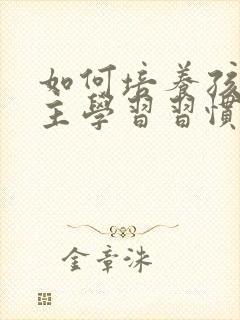 如何培养孩
主學習習慣
金章洙